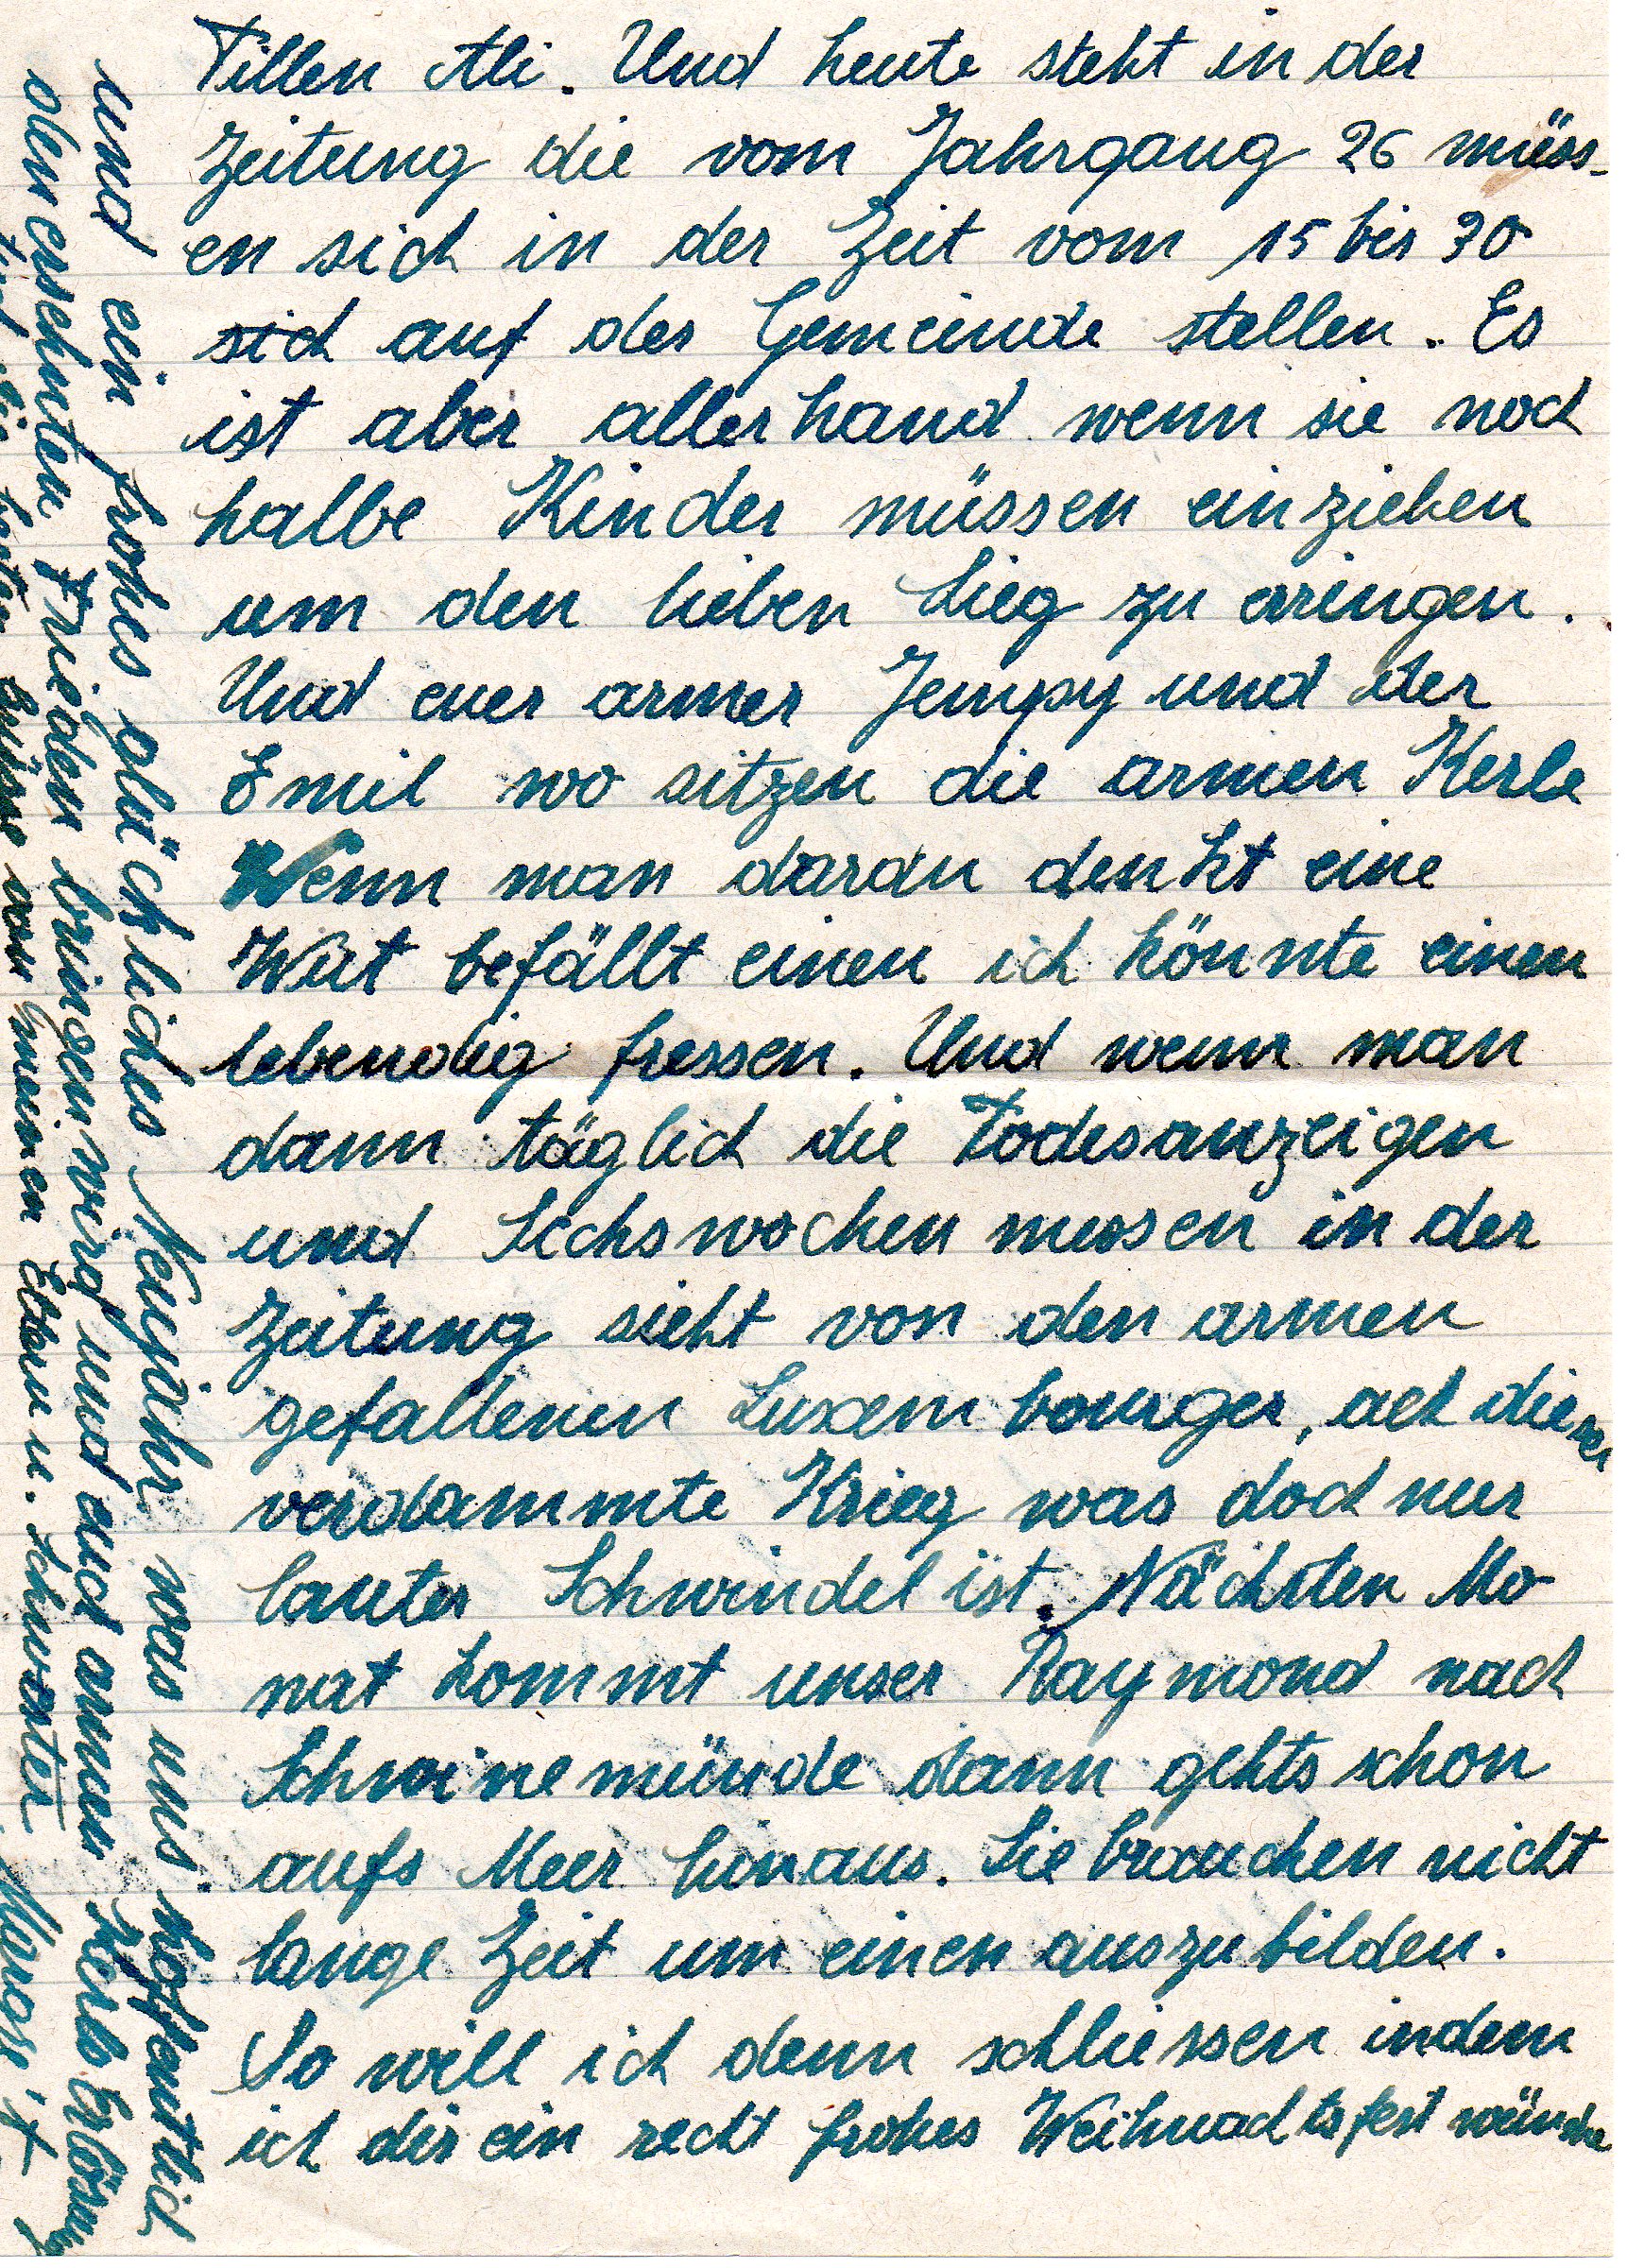 Tillen Ali. Und heute steht in der
Zeitung die vom Jahrgang 26 müss-
en sich in der Zeit vom 15 bis 30
sich auf der Gemeinde stellen. Es
ist aber allerhand wenn sie noch
halbe Kinder müssen einziehen
um den lieben Sieg zu erringen.
Und euer armer Jempy und der
Emil wo sitzen die armen Kerle
Wenn man daran denkt eine
Wut befällt einen ich könnte einen
lebendig fressen. Und wenn man
dann täglich die Todesanzeigen
und Sechswochen messen in der
Zeitung sieht von den armen
gefallenen Luxembourger, ach dieser
verdammte Krieg was doch nur
lauter Schwindel ist. Nächsten Mo
nat kommt unser Raymond nach
Schwinemünde dann gehts schon
aufs Meer hinaus. Sie brauchen nicht
lange Zeit um einen auszubilden.
So will ich denn schliessen indem
ich dir ein recht frohes Weihnachtsfest wünsche
und ein frohes glückliches Neujahr was uns hoffentlich
den ersehnten Frieden bringen wird und auch armen Kerls Erlösung
Grüsse von meinen Eltern u. Schwester